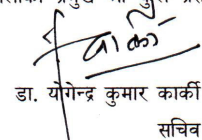 कार्की
डा. योगेन्द्र कुमार कार्की
सचिव